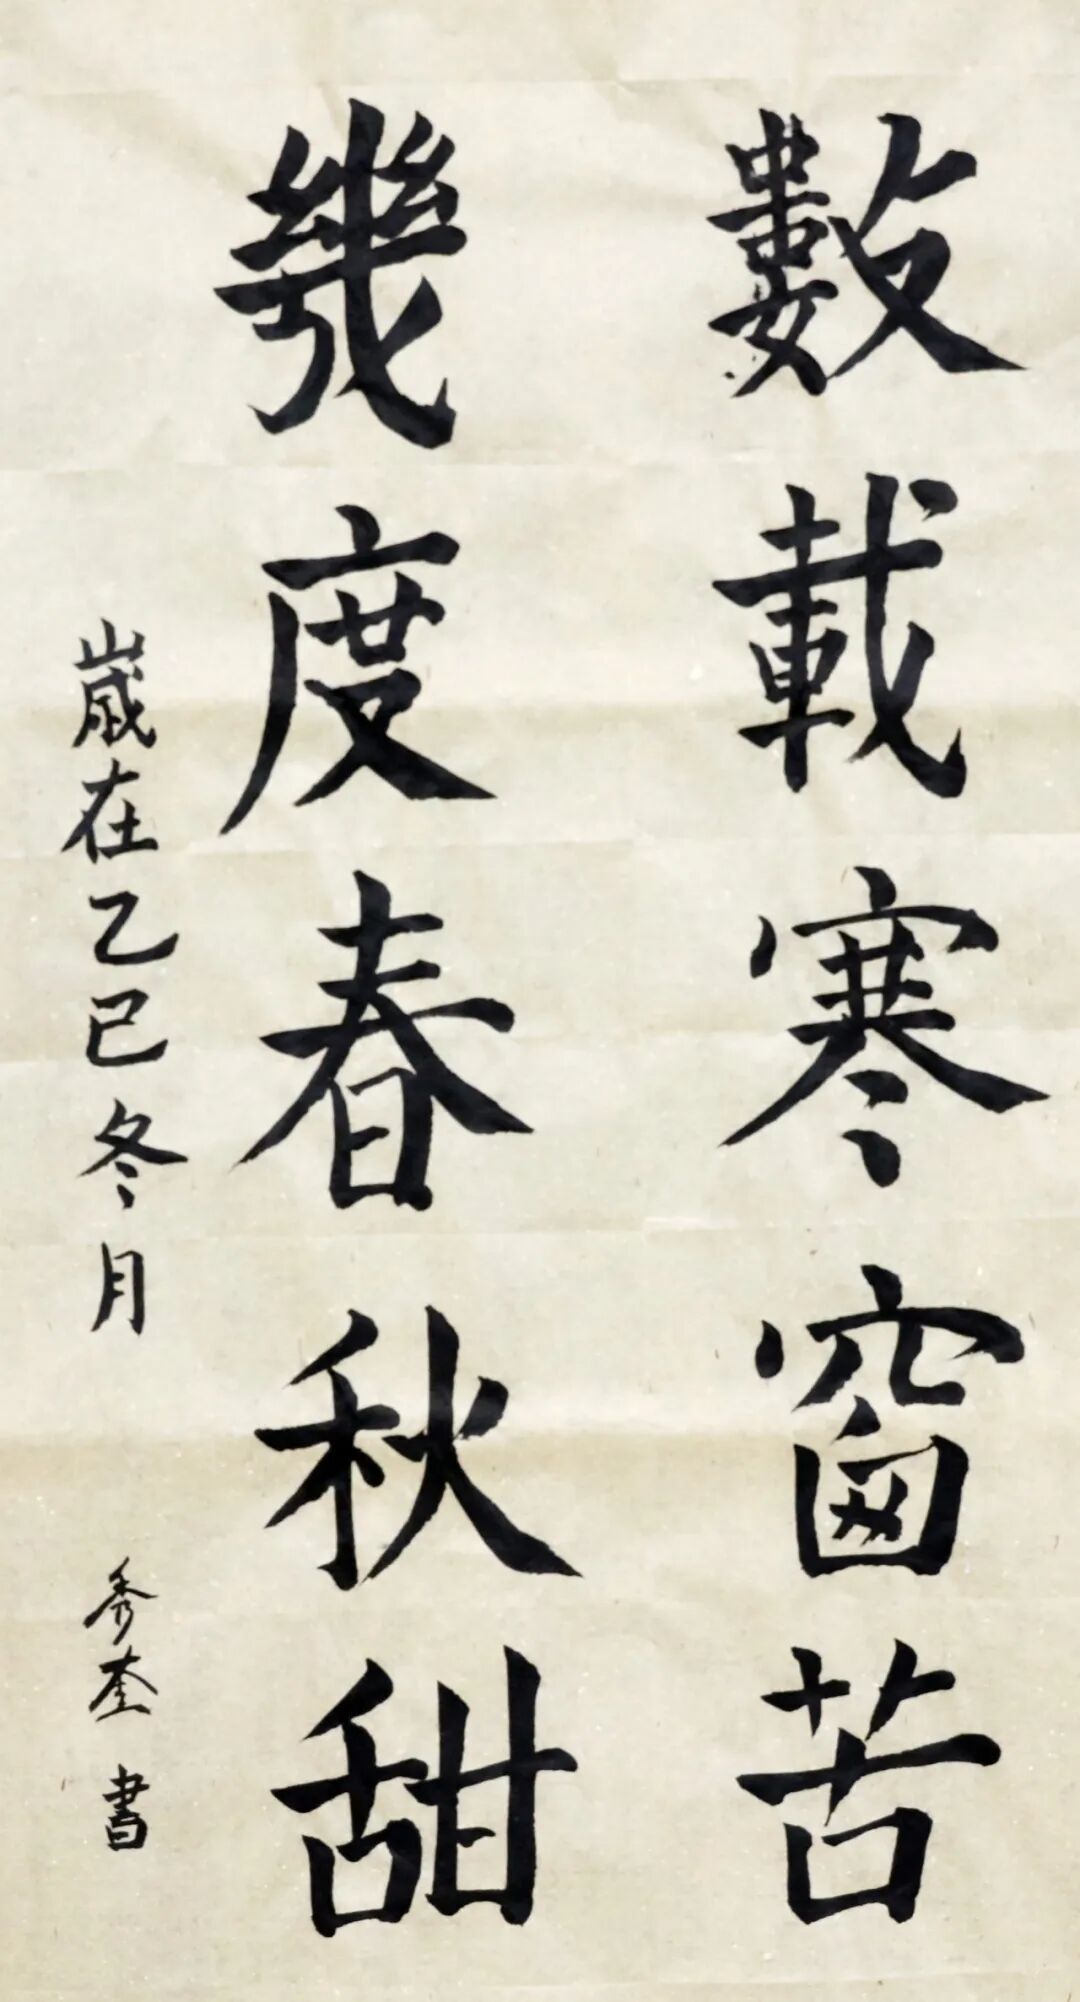 數載寒窗苦
幾度春秋甜
歲在乙巳冬月
秀奎書